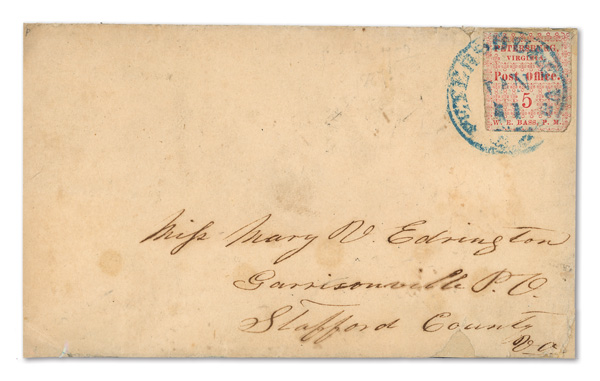 PETERSBURG,
VIRGINIA
Post Office.
5
W. E. BASS, P. M.
PETERSBURG
JAN
Miss Mary V. Edrington
Garrisonville P. O.
Stafford County
Va